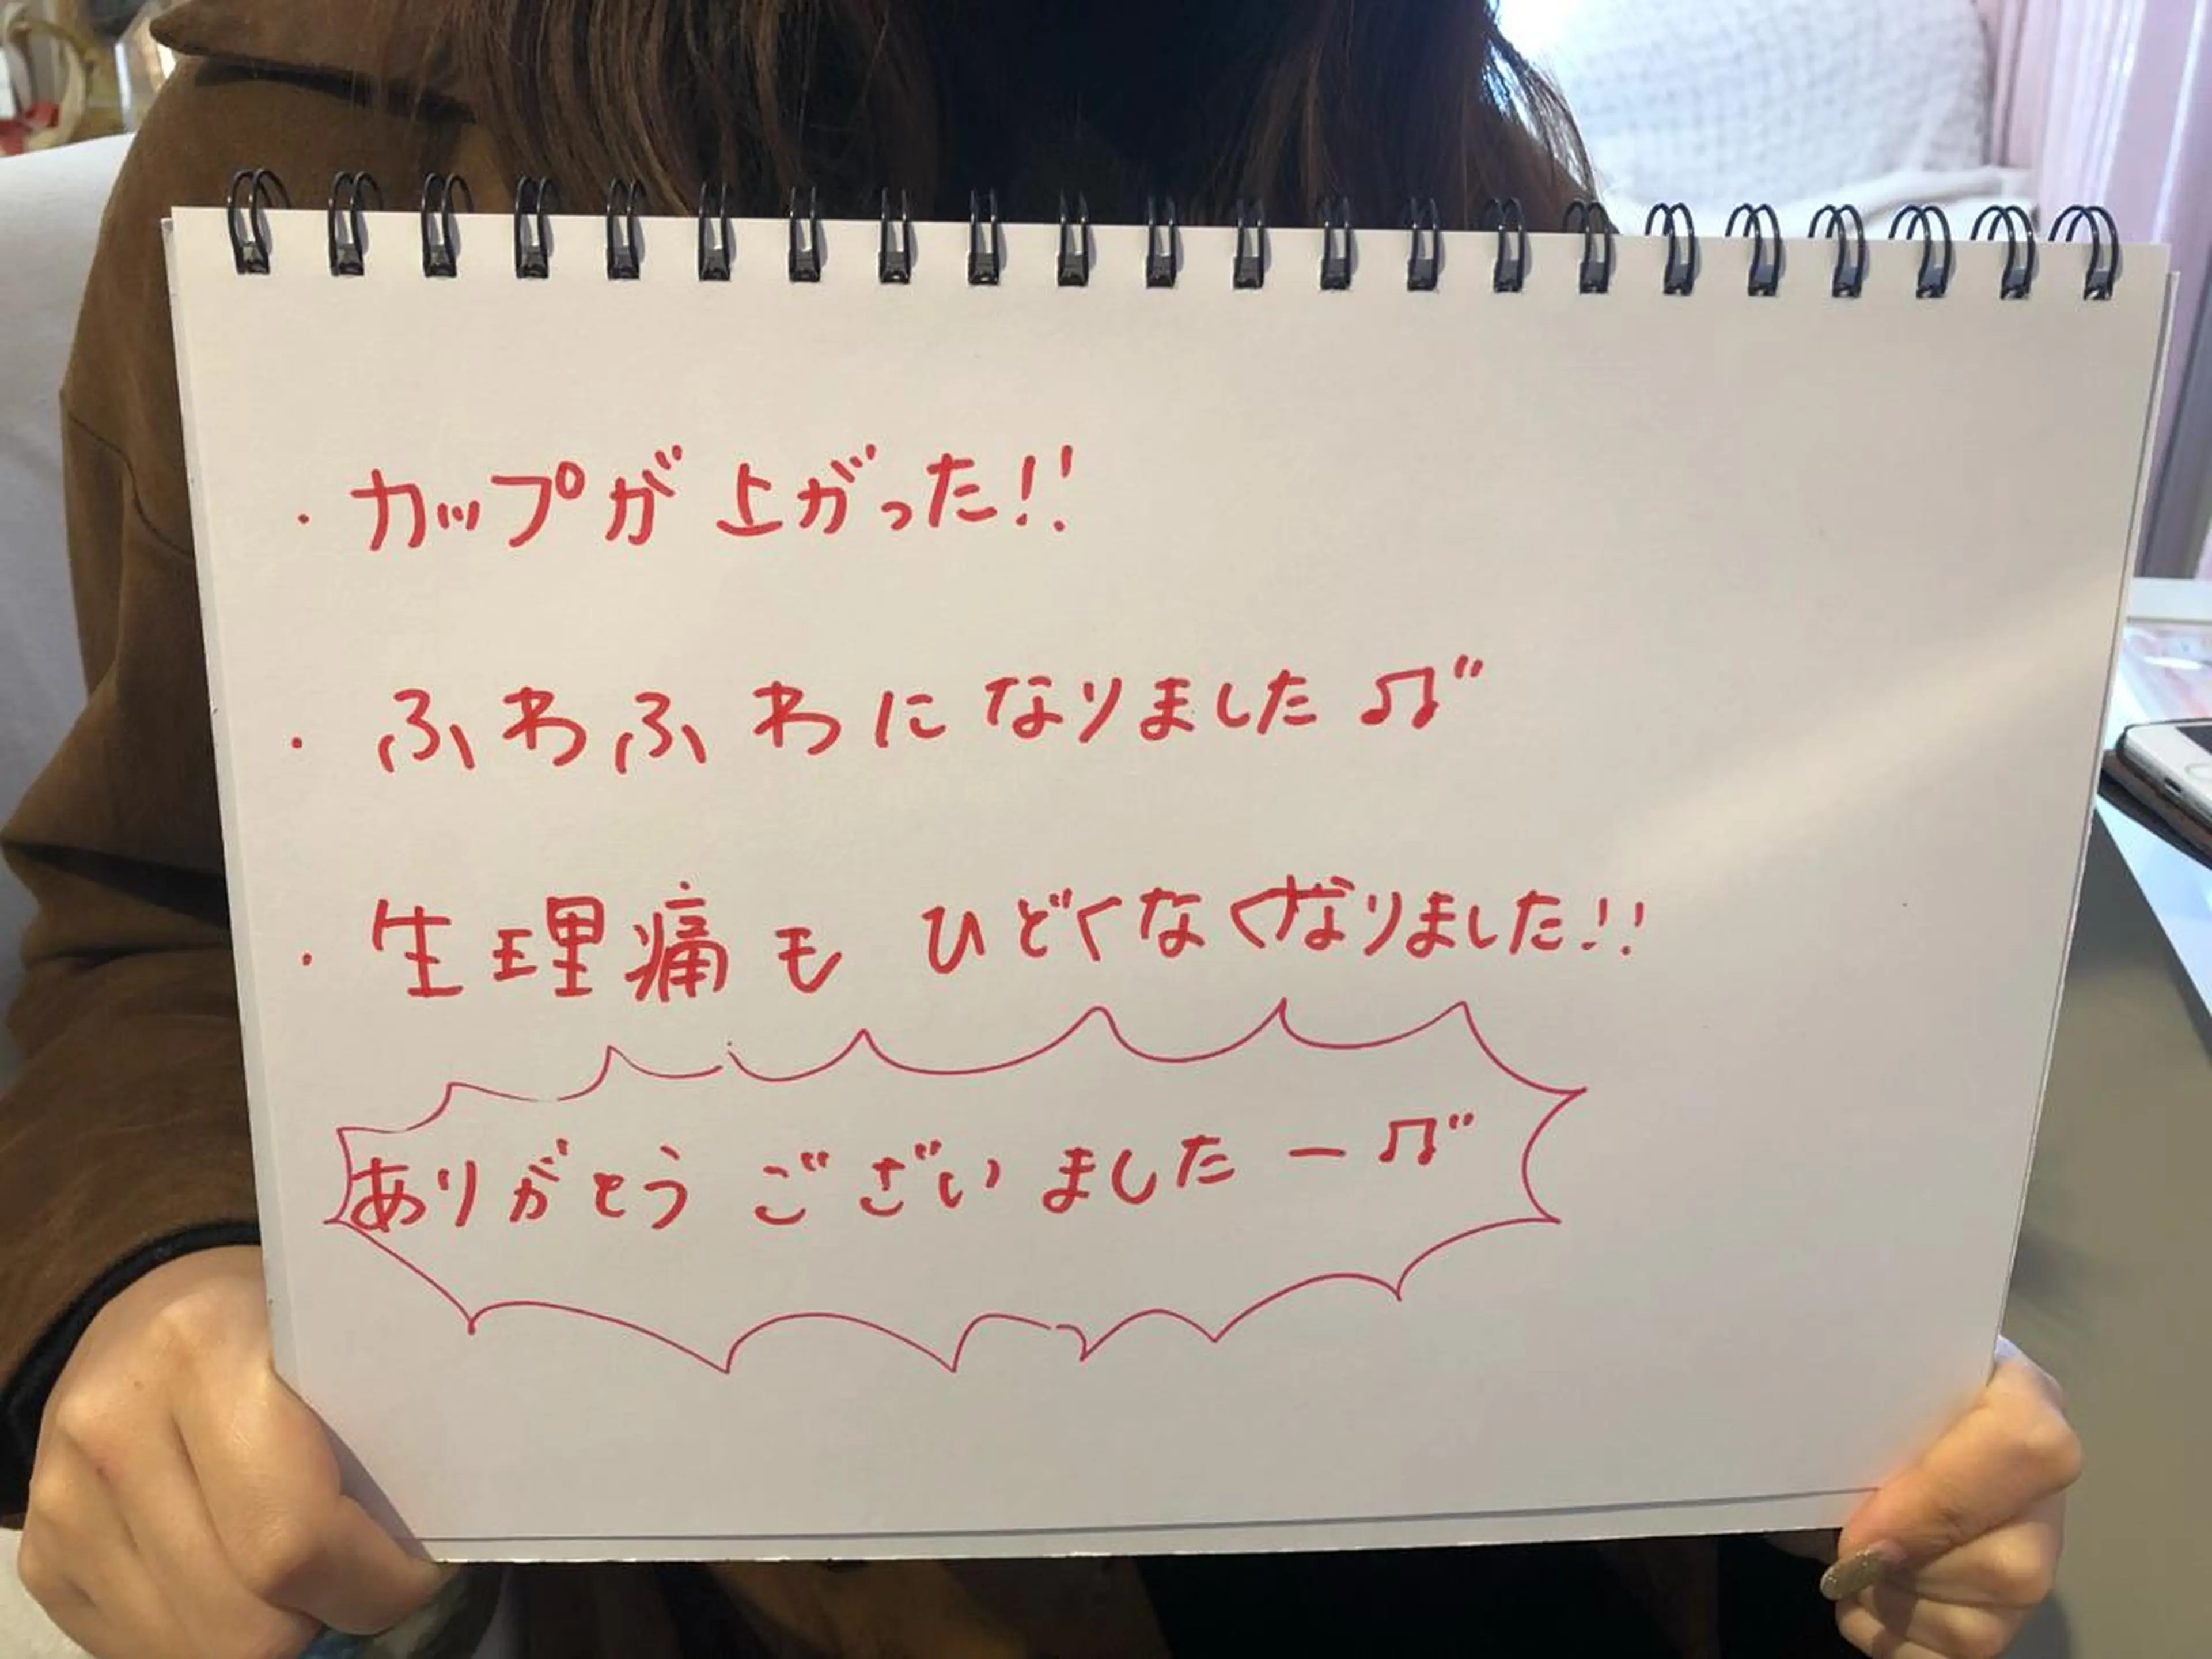 ・カップが上がった!!
・ふわふわになりました♫"
・生理痛もひどくなくなりました!!
ありがとうございましたー♫"